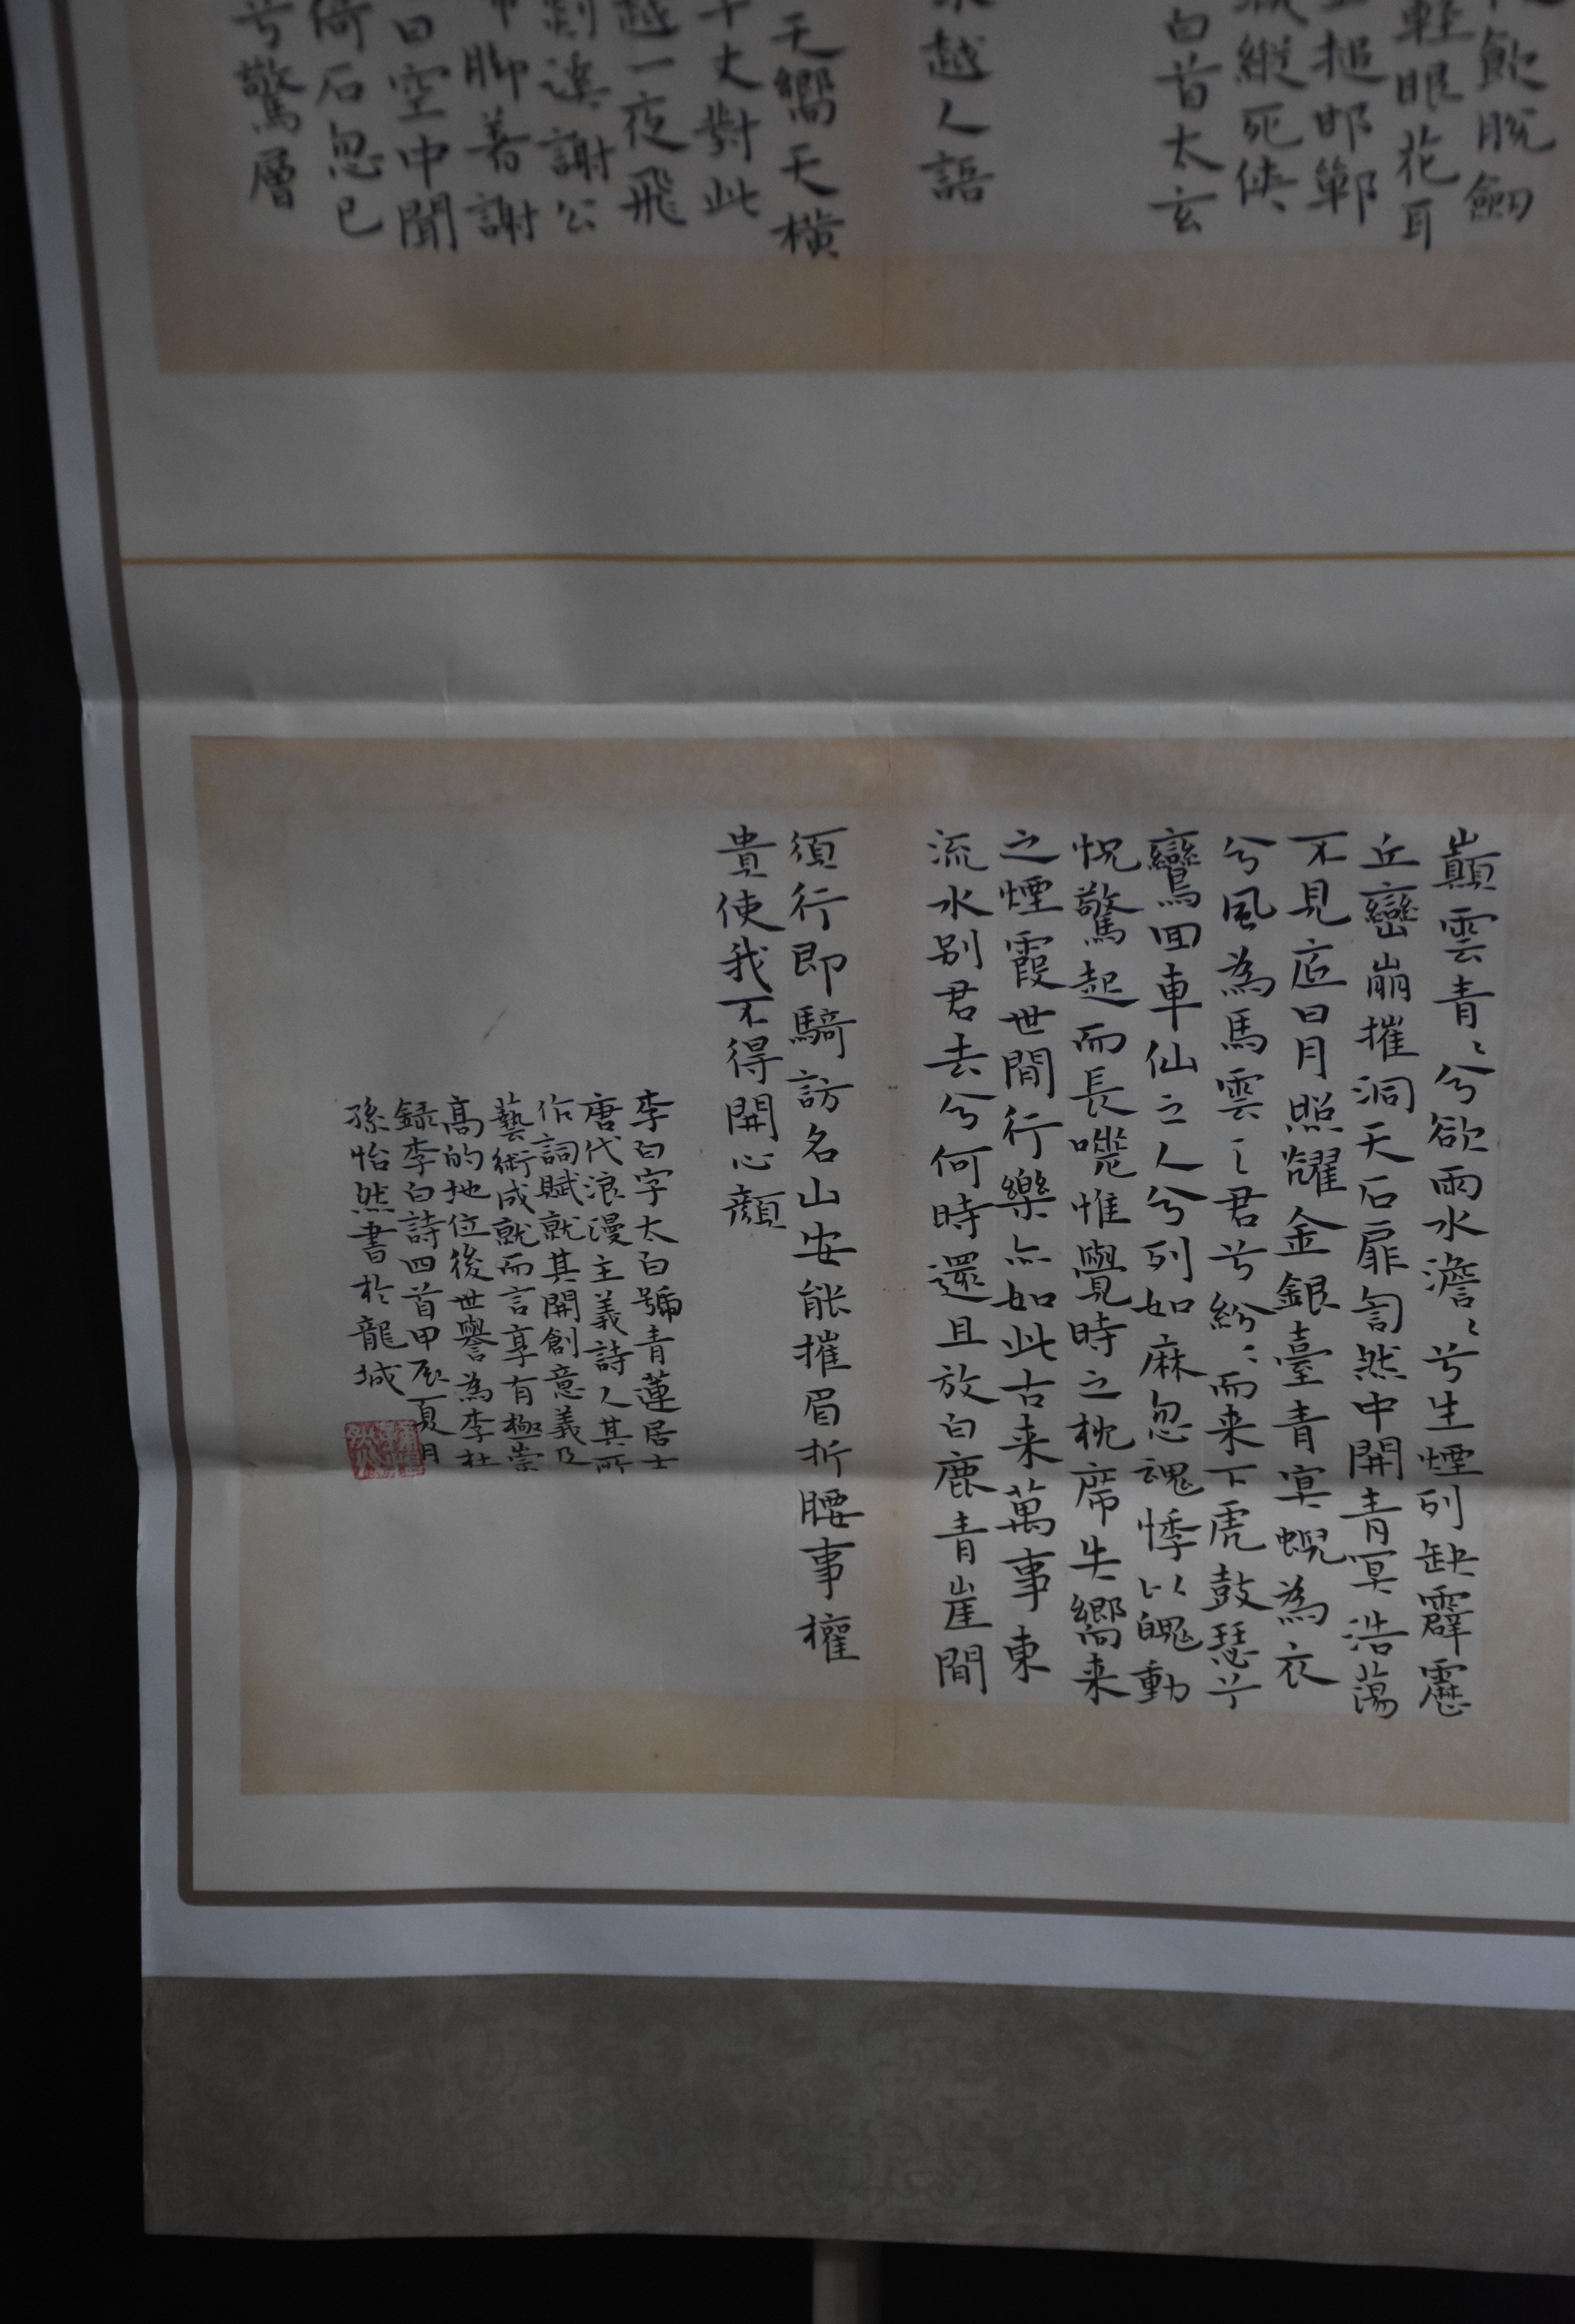 飲脫劒
輕眼花耳
搥邯鄲
縱死俠
白首太玄
越人語
天嚮天橫
丈對此
越一夜飛
剡溪謝公
腳著謝
日空中聞
倚石忽已
兮驚層
巔雲青〻兮欲雨水澹〻兮生煙列缺霹靂
丘巒崩摧洞天石扉訇然中開青冥浩蕩
不見底日月照耀金銀臺青冥蜺為衣
兮風為馬雲之君兮紛〻而来下虎鼓瑟兮
鸞回車仙之人兮列如麻忽魂悸以魄動
怳驚起而長嗟惟覺時之枕席失嚮来
之煙霞世間行樂亦如此古来萬事東
流水别君去兮何時還且放白鹿青崖間
須行即騎訪名山安能摧眉折腰事權
貴使我不得開心顏
李白字太白號青蓮居士
唐代浪漫主義詩人其所
作詞賦就其開創意義及
藝術成就而言享有極崇
高的地位後世譽為李杜
録李白詩四首甲辰夏月
孫怡然書於龍城